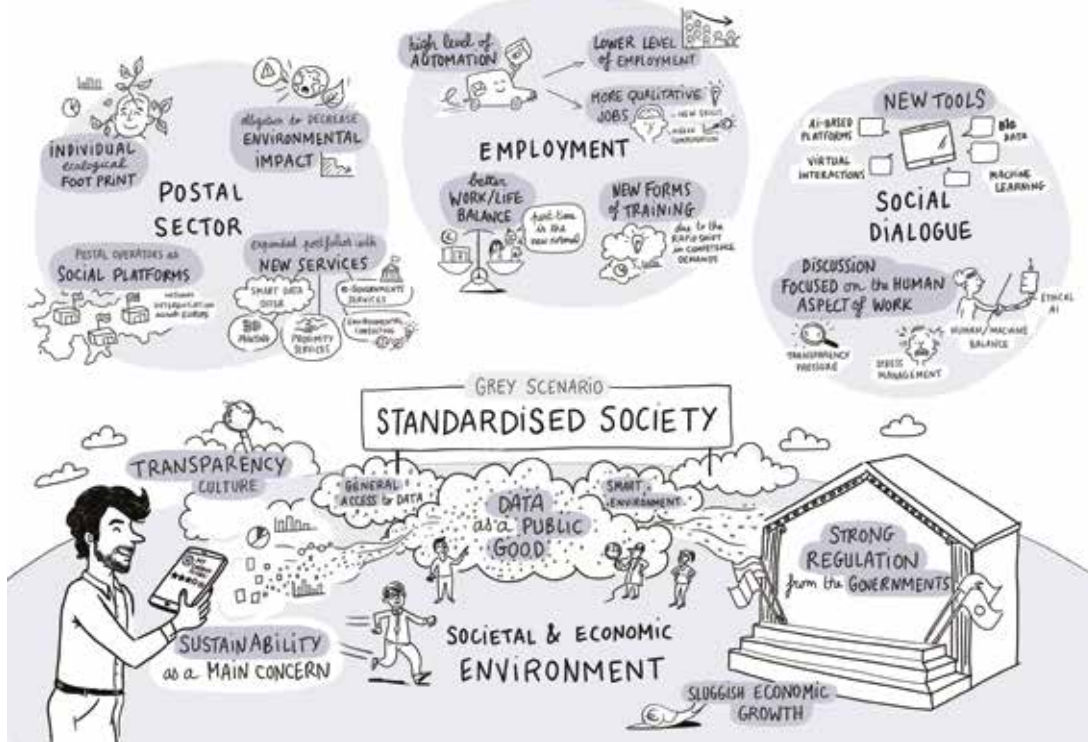 INDIVIDUAL
ecological
FOOT PRINT
obligation to DECREASE
ENVIRONMENTAL
IMPACT
POSTAL
SECTOR
POSTAL OPERATORS as
SOCIAL PLATFORMS
expanded portfolios with
NEW SERVICES
SMART DATA
e-GOVERNMENTS
SERVICES
3D
PRINTING
PROXIMITY
SERVICES
ENVIRONMENTAL
CONSULTING
high level of
AUTOMATION
LOWER LEVEL
of EMPLOYMENT
MORE QUALITATIVE
JOBS
NEW SKILLS
EMPLOYMENT
better
WORK/LIFE
BALANCE
part-time
is the
new normal
NEW FORMS
of TRAINING
due to the
RAPID SHIFT
in COMPETENCE
DEMANDS
NEW TOOLS
AI-BASED
PLATFORMS
BIG
DATA
VIRTUAL
INTERACTIONS
MACHINE
LEARNING
SOCIAL
DIALOGUE
DISCUSSION
FOCUSED on the HUMAN
ASPECT of WORK
ETHICAL
AI
HUMAN/MACHINE
BALANCE
TRANSPARENCY
PRESSURE
STRESS
MANAGEMENT
GREY SCENARIO
STANDARDISED SOCIETY
TRANSPARENCY
CULTURE
GENERAL
ACCESS to DATA
DATA
as a PUBLIC
GOOD
SMART
ENVIRONMENT
STRONG
REGULATION
from the GOVERNMENTS
SUSTAINABILITY
as a MAIN CONCERN
SOCIETAL & ECONOMIC
ENVIRONMENT
SLUGGISH ECONOMIC
GROWTH